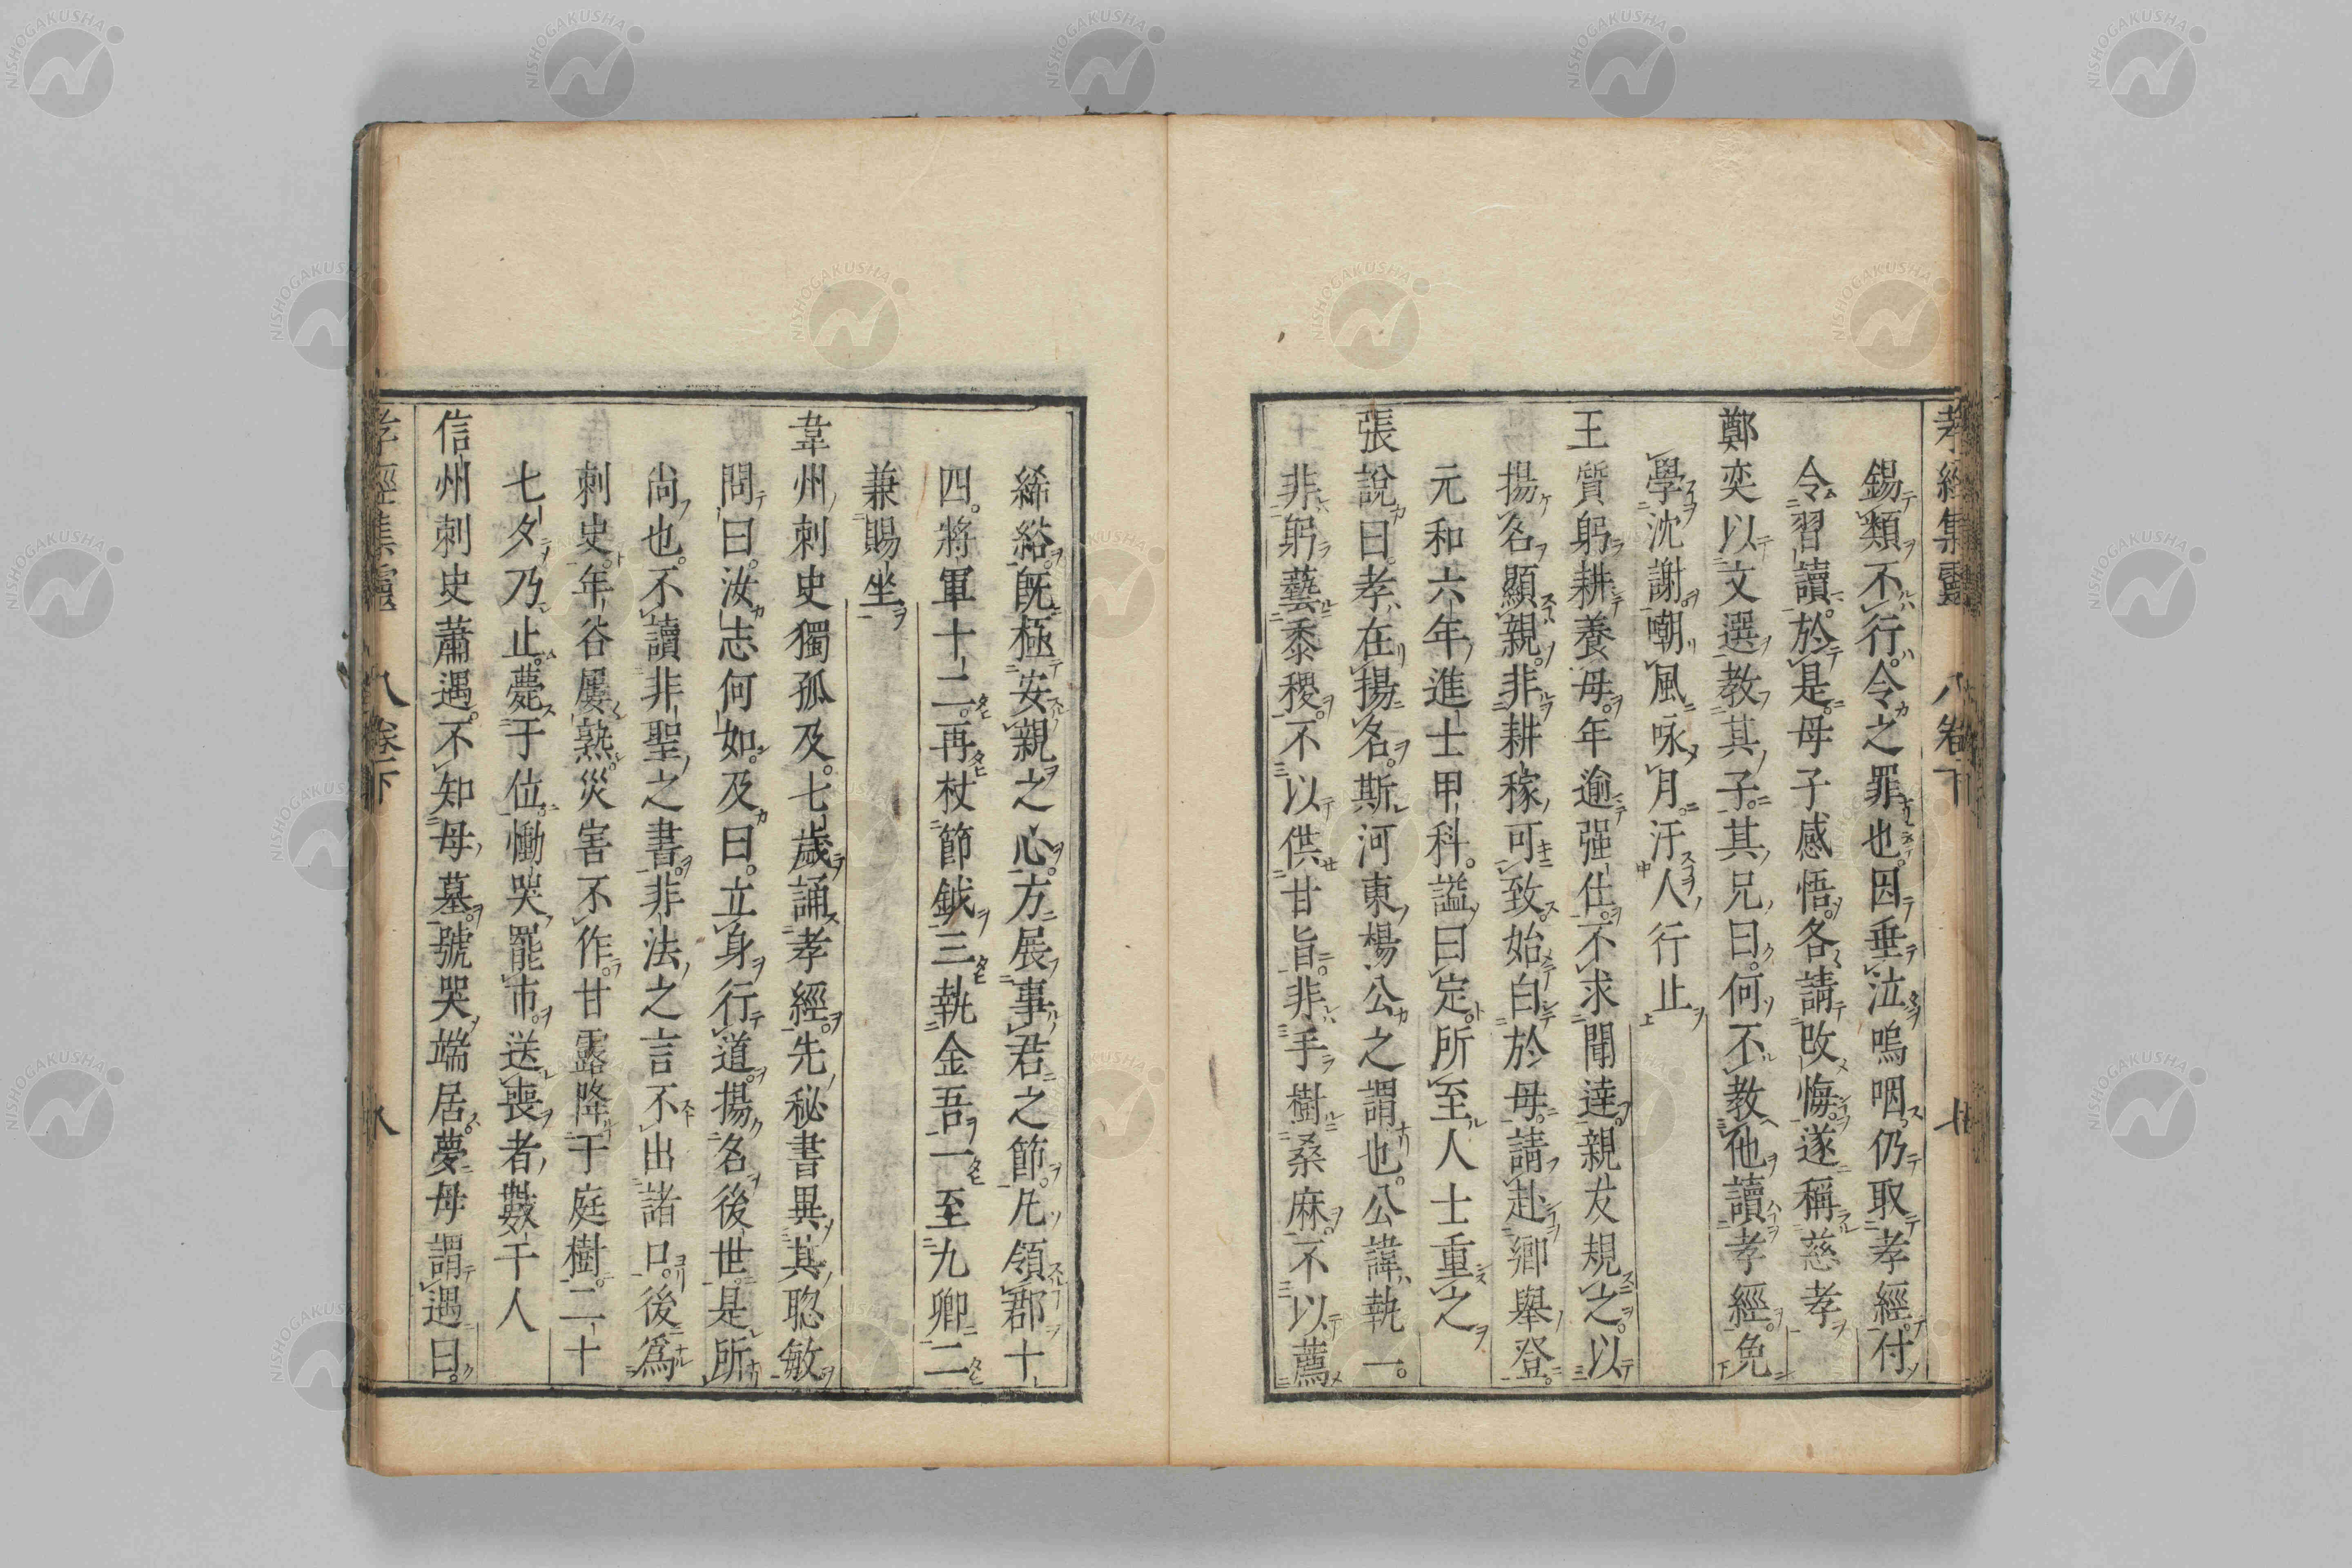 錫類不行令之罪也因垂泣嗚咽仍取孝經付
令習讀於是母子感悟各請改悔遂稱慈孝
鄭奕以文選教其子其兄曰何不教他讀孝經免
學沈謝嘲風咏月汙人行止
王質躬耕養母年逾强仕不求聞達親友規之以
揚名顯親非耕稼可致始白於母請赴鄉舉登
元和六年進士甲科謚曰定所至人士重之
張說曰孝在揚名斯河東楊公之謂也公諱執一
非躬藝黍稷不以供甘旨非手樹桑麻不以薦
絺綌旣極安親之心方展事君之節凡領郡十
四將軍十二再杖節鉞三執金吾一至九卿二
兼賜坐
韋州刺史獨孤及七歲誦孝經先秘書異其聡敏
問曰汝志何如及曰立身行道揚名後世是所
尚也不讀非聖之書非法之言不出諸口後爲
刺史年谷屢熟災害不作甘露降于庭樹二十
七夕乃止薨于位慟哭罷市送喪者數千人
信州刺史蕭遇不知母墓號哭端居夢母謂遇曰
孝經集靈 卷下 八
NISHOGAKUSHA